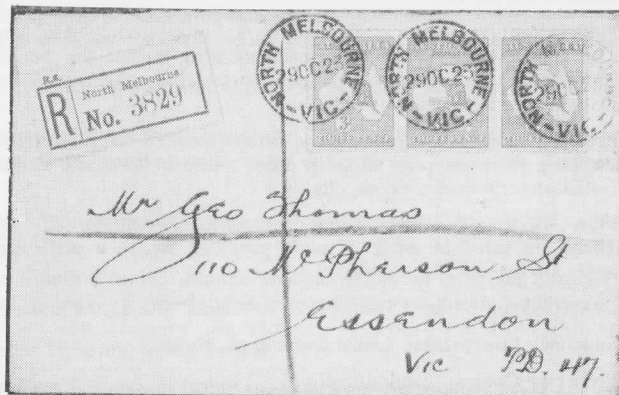 R.6.
R North Melbourne
No. 3829
NORTH MELBOURNE
29 OC 23
- VIC -
NORTH MELBOURNE
29 OC 23
- VIC -
NORTH MELBOURNE
29 OC
- VIC -
Mr Geo Thomas
110 Mc Pherson St
Essendon
Vic P.D. 47.